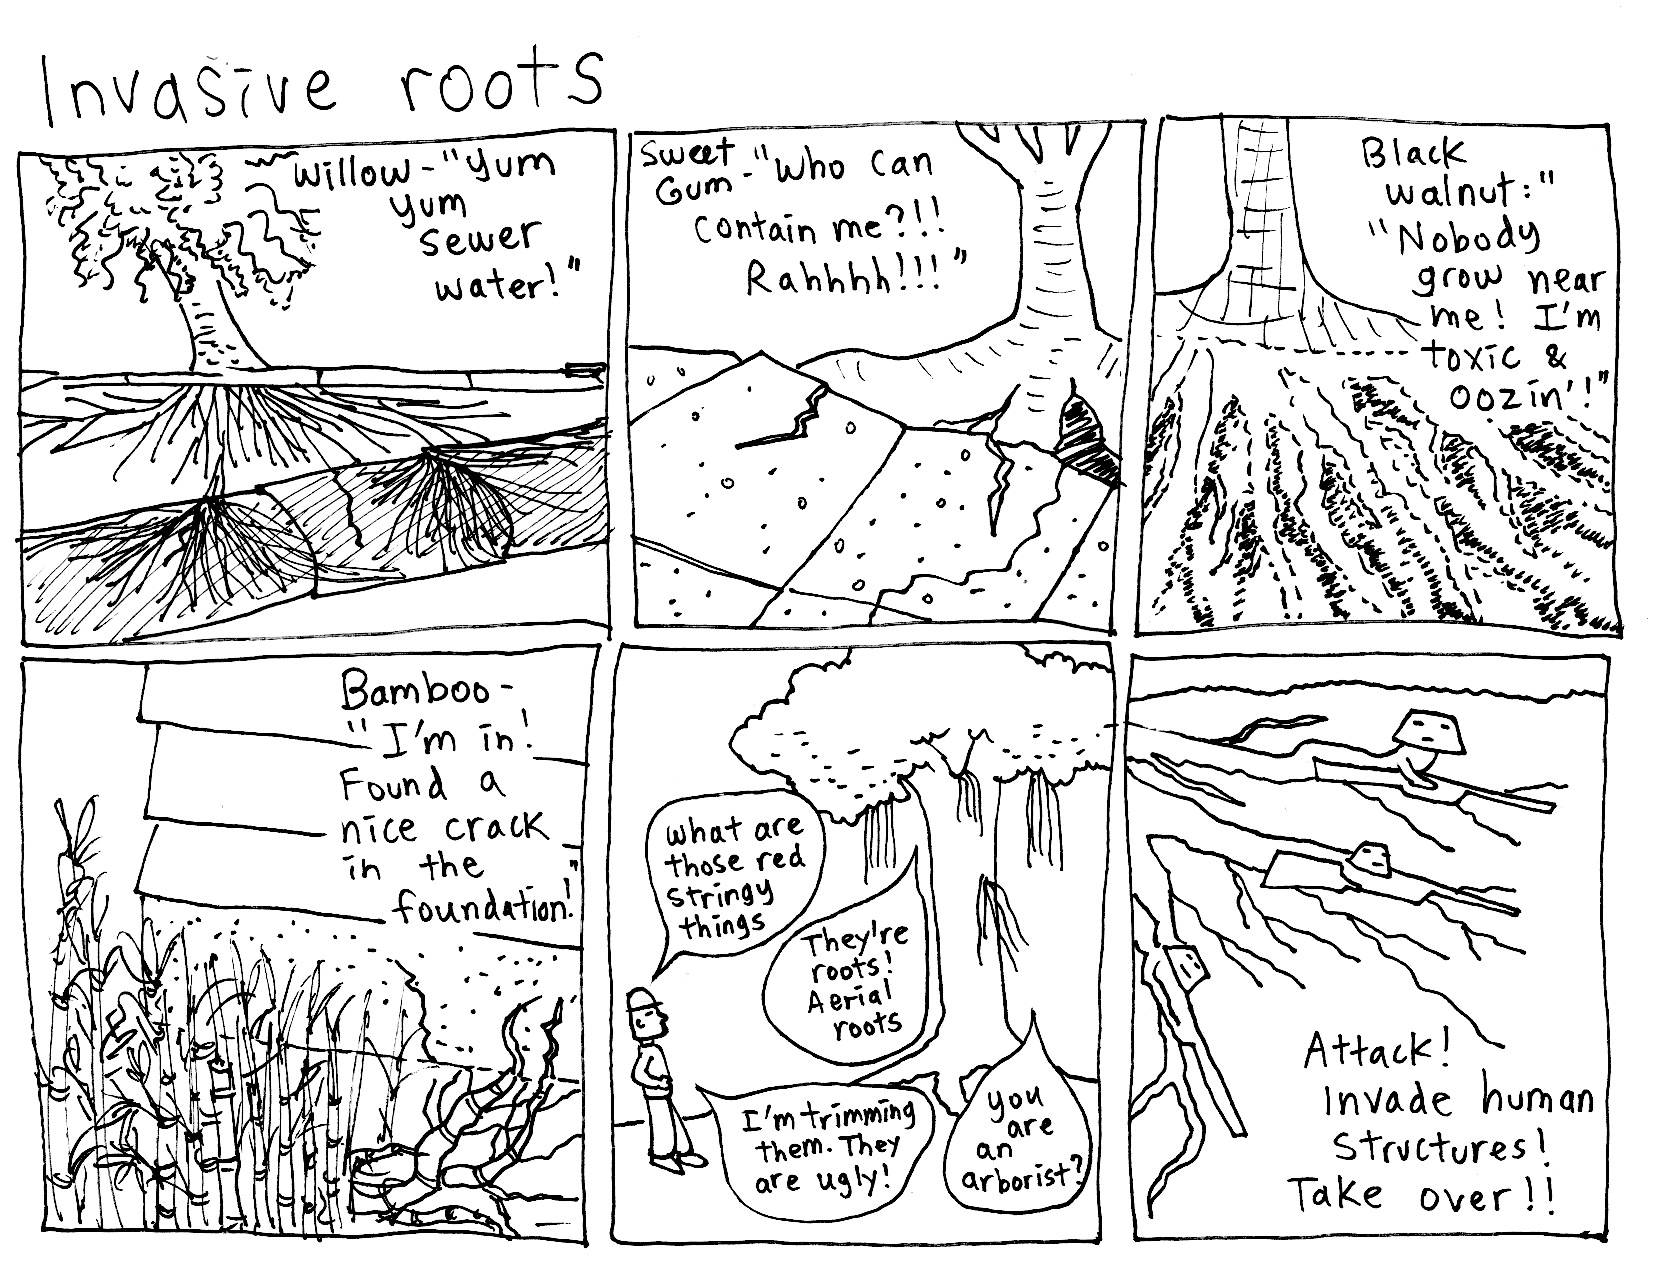 Invasive roots
Willow-"Yum
yum
sewer
water!"
Sweet
Gum-"Who can
contain me?!!
Rahhhh!!!"
Black
walnut:"
"Nobody
grow near
me! I'm
toxic &
oozin'!"
Bamboo-
"I'm in!
Found a
nice crack
in the
foundation!"
what are
those red
stringy
things
They're
roots!
Aerial
roots
I'm trimming
them. They
are ugly!
you
are
an
arborist?
Attack!
Invade human
structures!
Take over!!